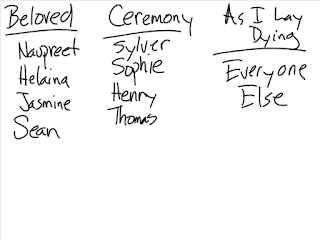 Beloved
Navpreet
Helaina
Jasmine
Sean
Ceremony
Sylver
Sophie
Henry
Thomas
As I Lay
Dying
Everyone
Else